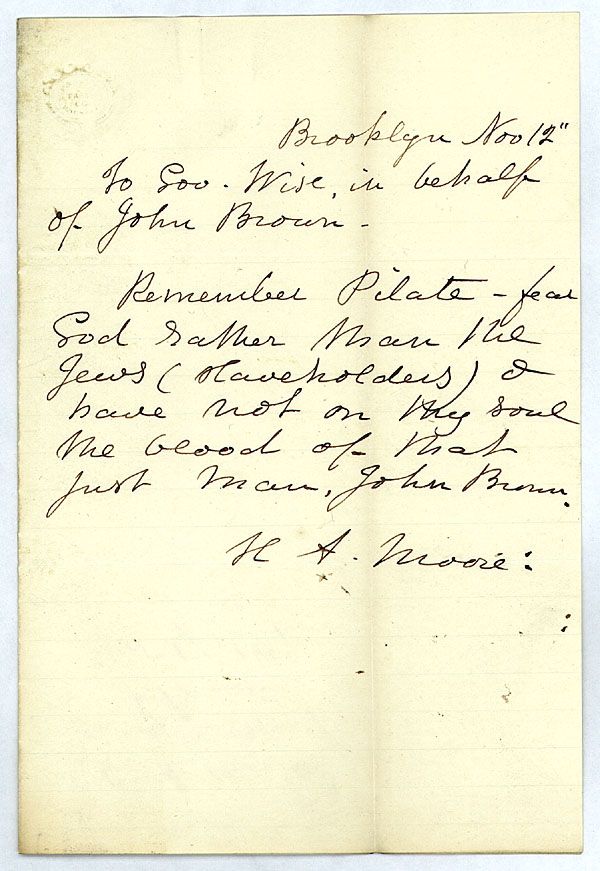 Brooklyn Nov 12"
To Gov. Wise, in behalf
of John Brown -
Remember Pilate - fear
God rather than the
Jews (slaveholders) &
have not on thy soul
the blood of that
just man, John Brown.
H A. Moore: